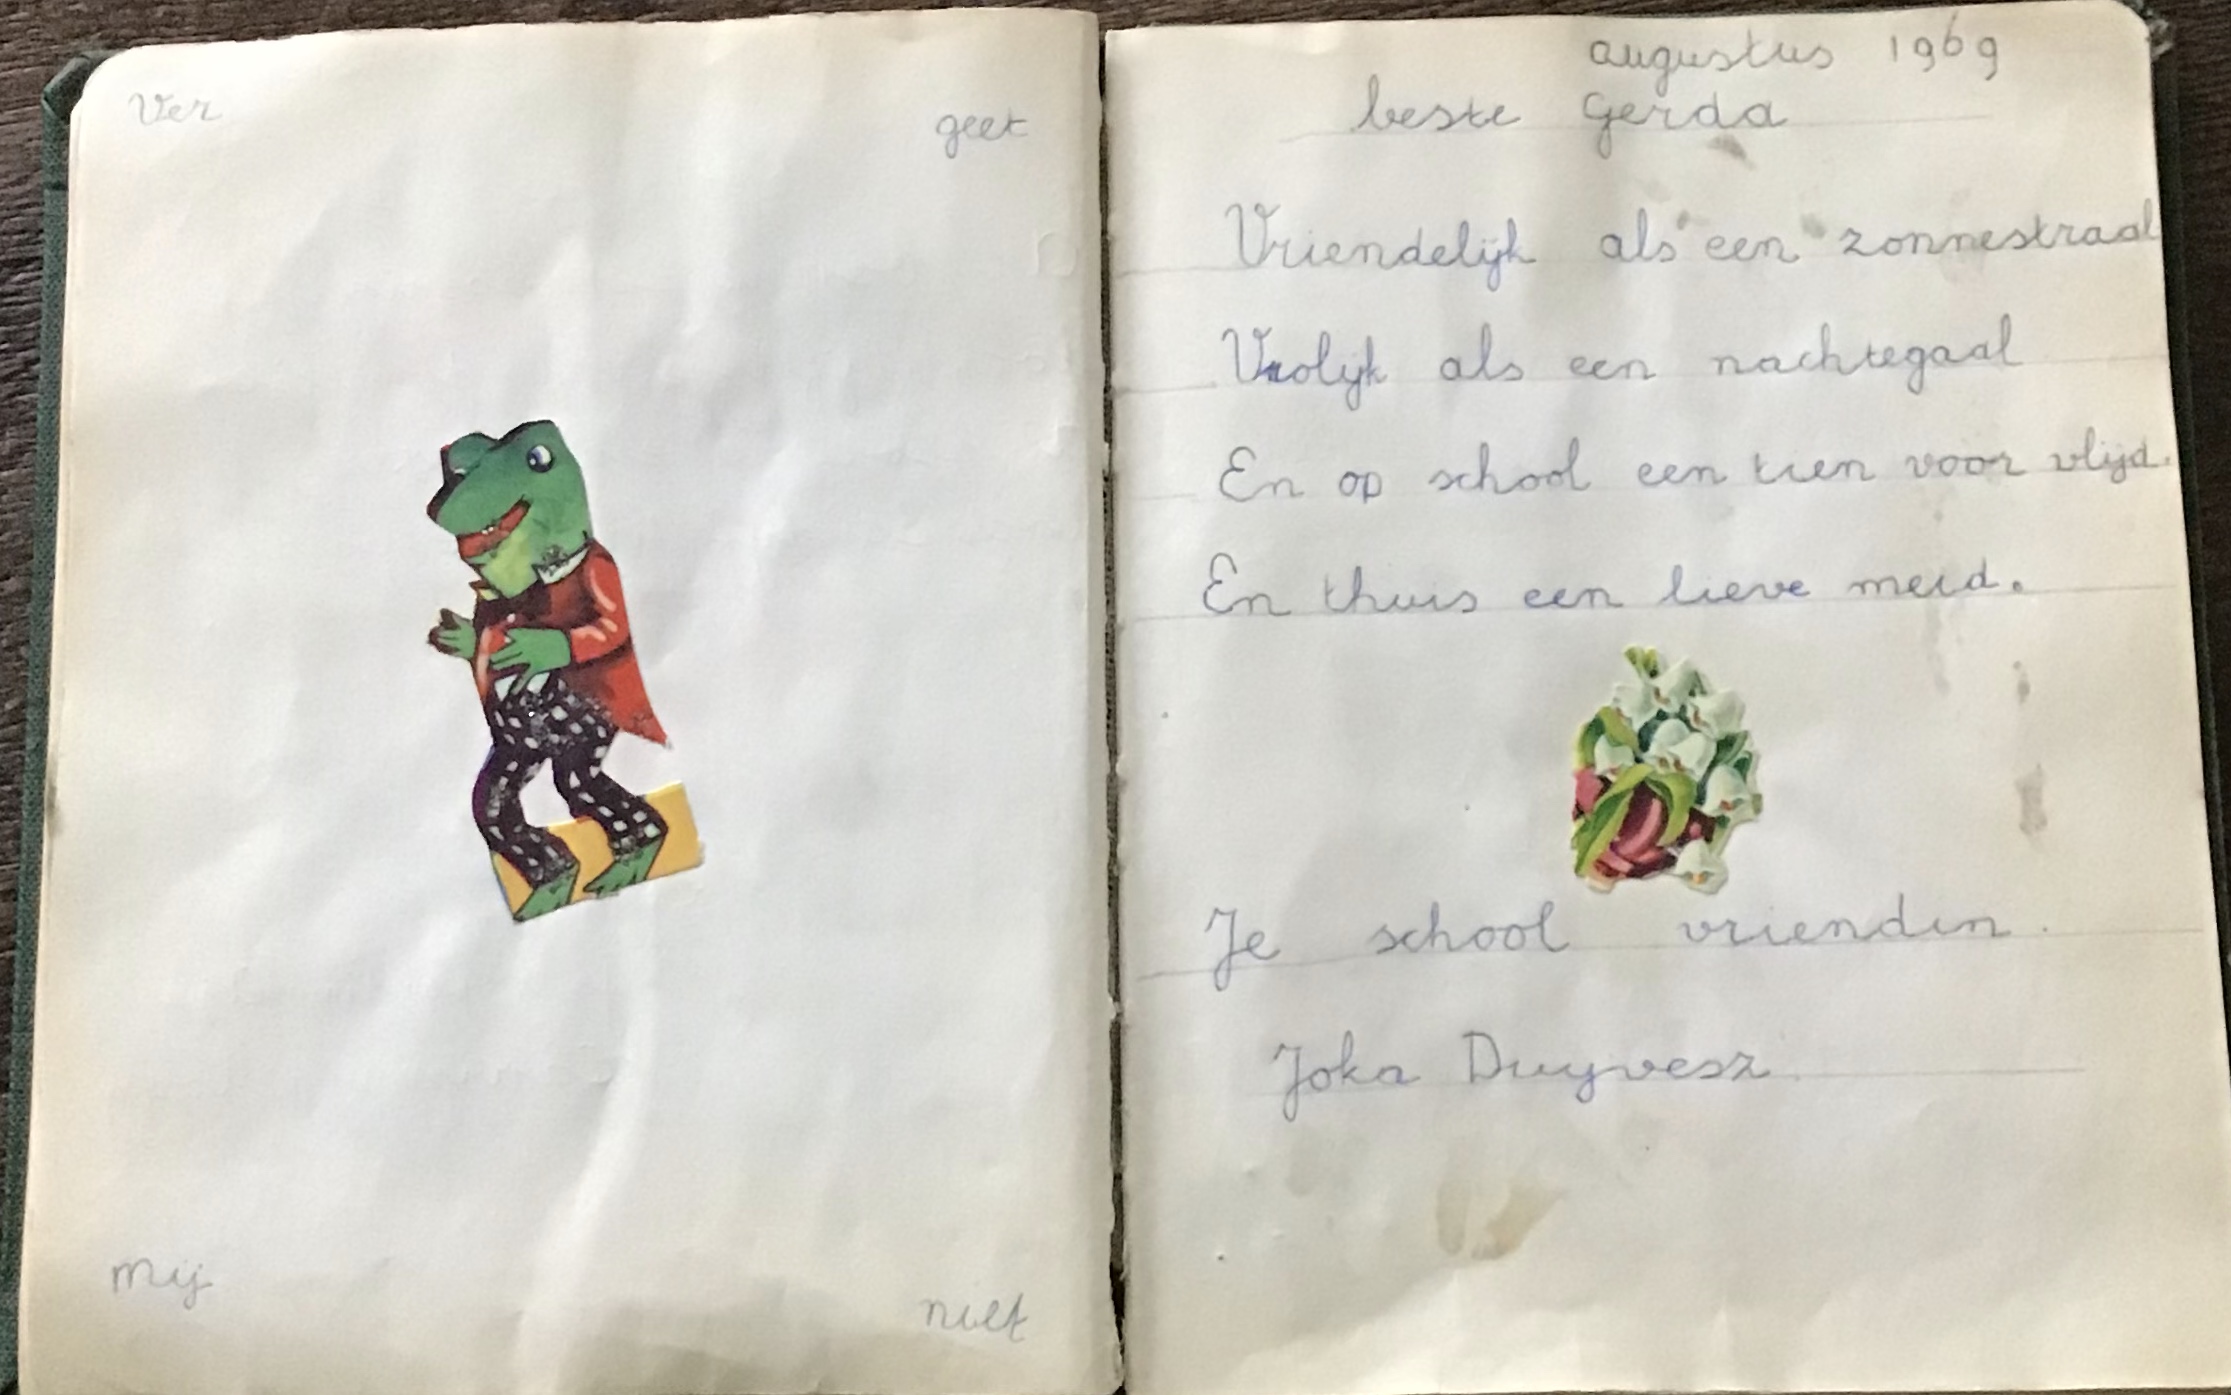 Ver geet
mij niet
augustus 1969
beste Gerda
Vriendelijk als een zonnestraal
Vrolijk als een nachtegaal
En op school een tien voor vlijd.
En thuis een lieve meid.
Je school vriendin.
Joka Duyvesz